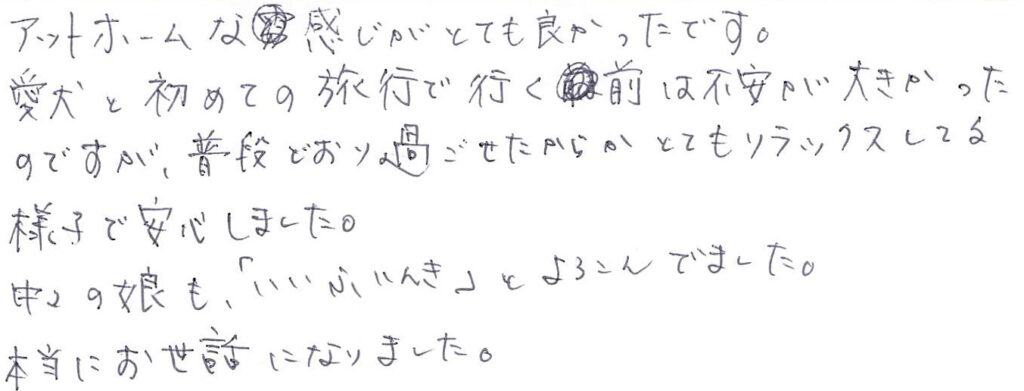 アットホームな感じがとても良かったです。
愛犬と初めての旅行で行く前は不安が大きかった
のですが、普段どおり過ごせたからかとてもリラックスしてる
様子で安心しました。
中2の娘も、「いいふいんき」とよろこんでました。
本当にお世話になりました。